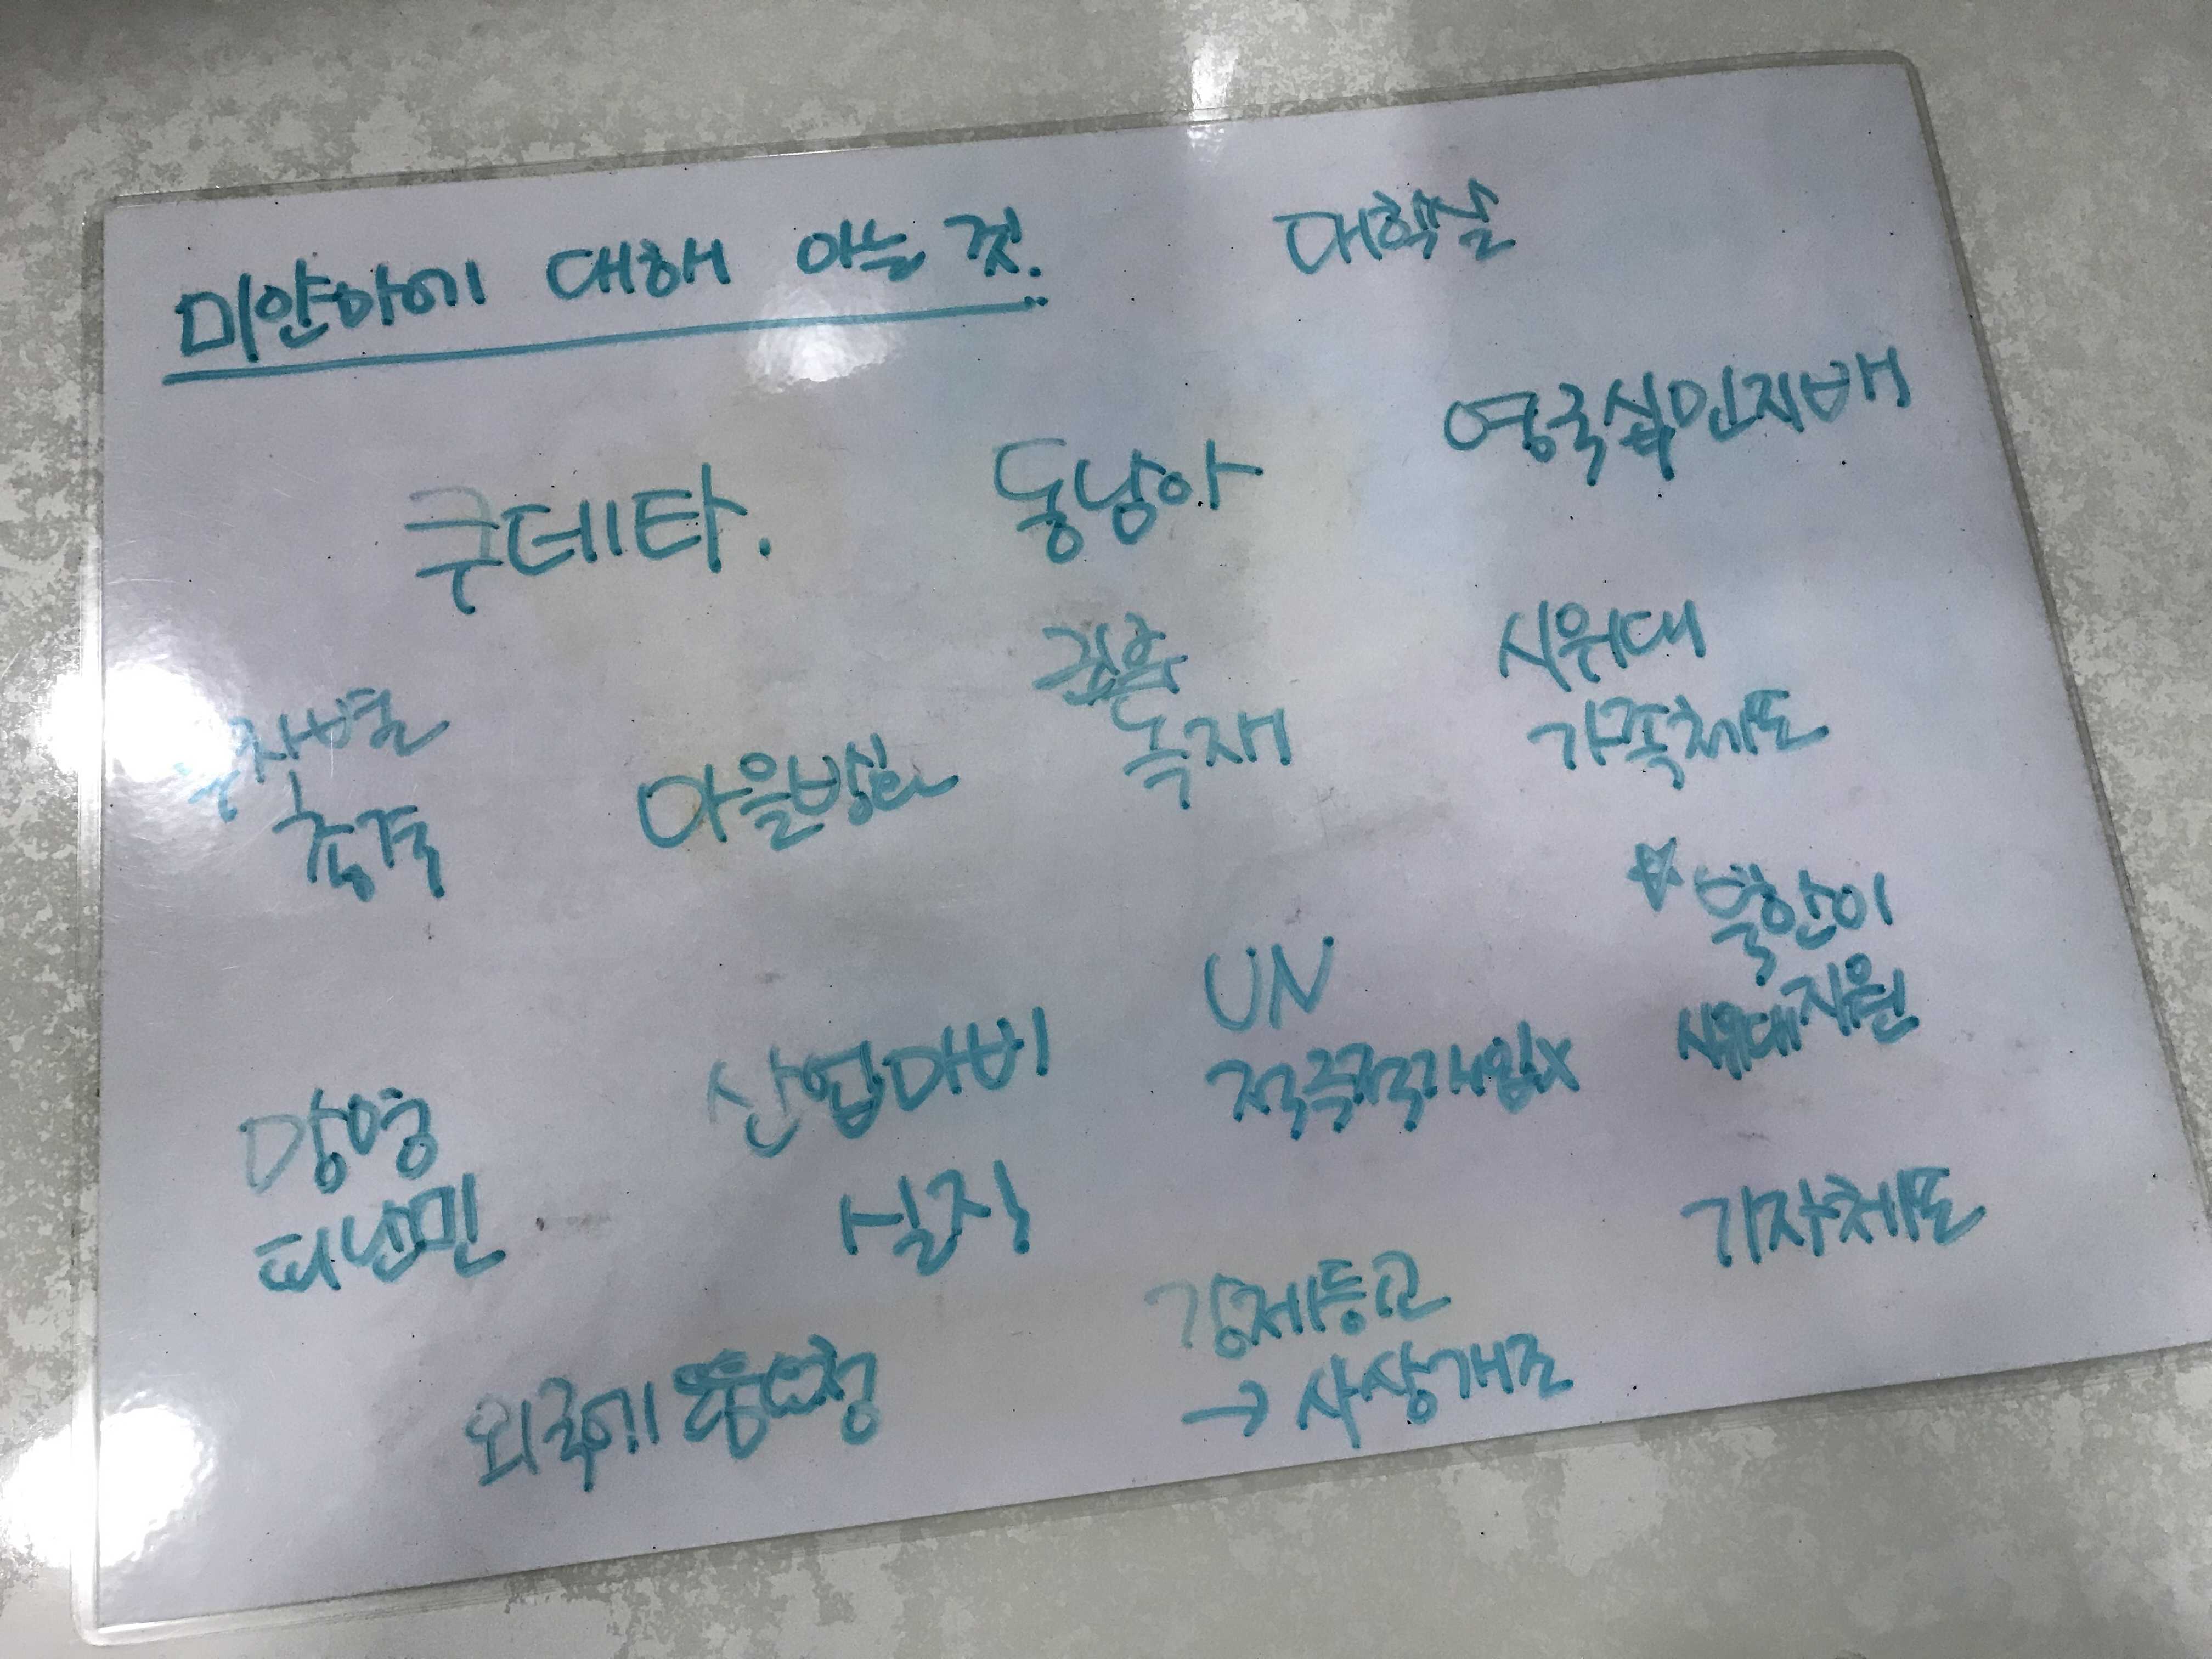 미얀마에 대해 아는 것.
대학살
쿠데타.
동남아
영국식민지배
무차별
총격
마을방화
군부
독재
시위대
가족체포
망명
피난민
산업마비
실직
UN
적극적개입X
☆ 북한이
시위대지원
기자체포
외국에 도움요청
강제등교
→ 사상개조